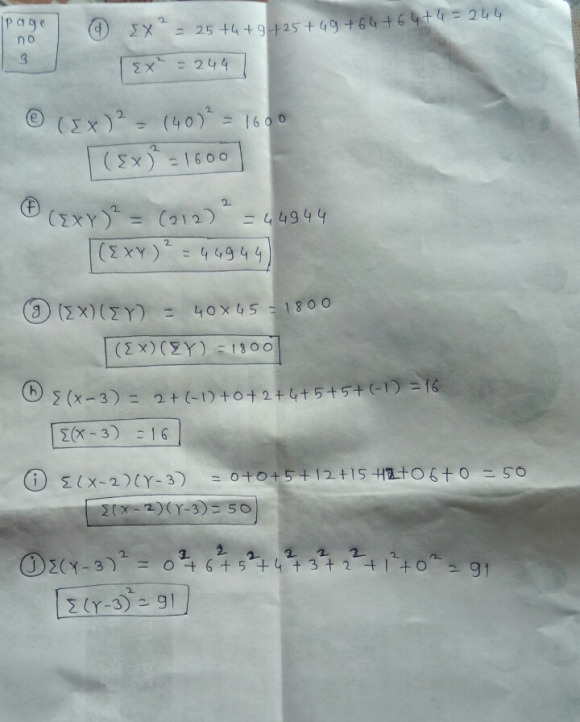 page
no
3
(d) Σx² = 25+4+9+25+49+64+64+4 = 244
Σx² = 244
(e) (Σx)² = (40)² = 1600
(Σx)² = 1600
(f) (ΣXY)² = (212)² = 44944
(ΣXY)² = 44944
(g) (ΣX)(ΣY) = 40×45 = 1800
(ΣX)(ΣY) = 1800
(h) Σ(X-3) = 2+(-1)+0+2+4+5+5+(-1) = 16
Σ(X-3) = 16
(i) Σ(X-2)(Y-3) = 0+0+5+12+15+12+06+0 = 50
Σ(X-2)(Y-3) = 50
(j) Σ(Y-3)² = 0²+6²+5²+4²+3²+2²+1²+0² = 91
Σ(Y-3)² = 91